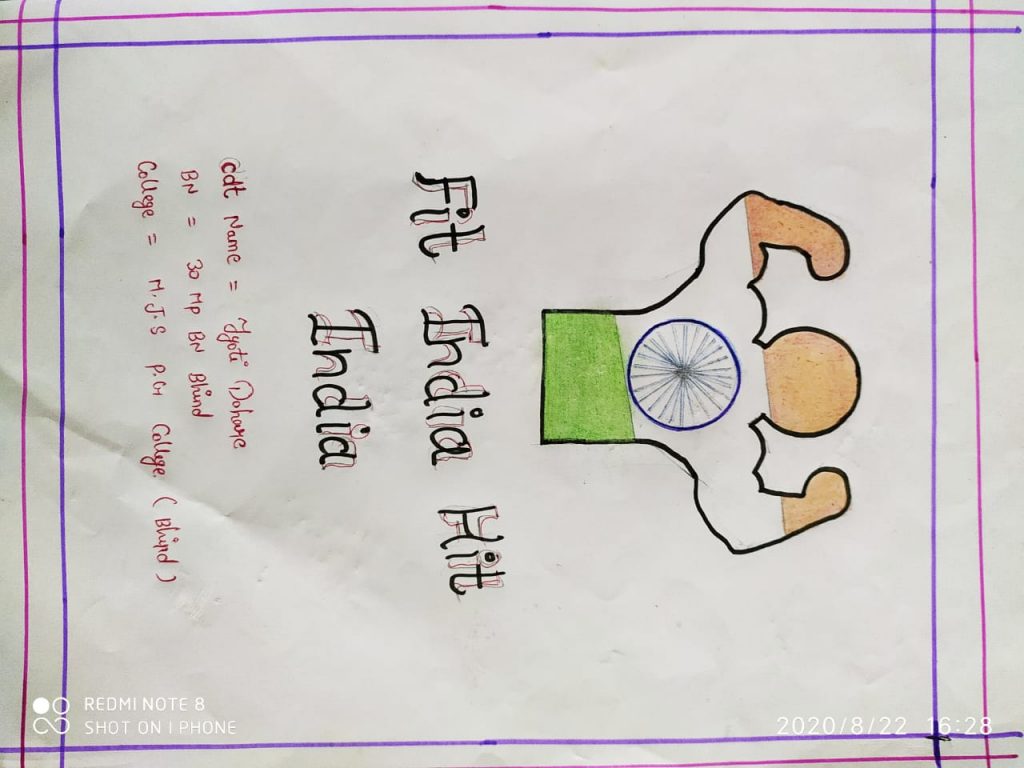 Fit India Hit
India
Cdt Name = Jyoti Dohare
BN = 30 MP BN Bhind
College = M.J.S P.G College (Bhind)
REDMI NOTE 8
SHOT ON I PHONE
2020/8/22 16:28